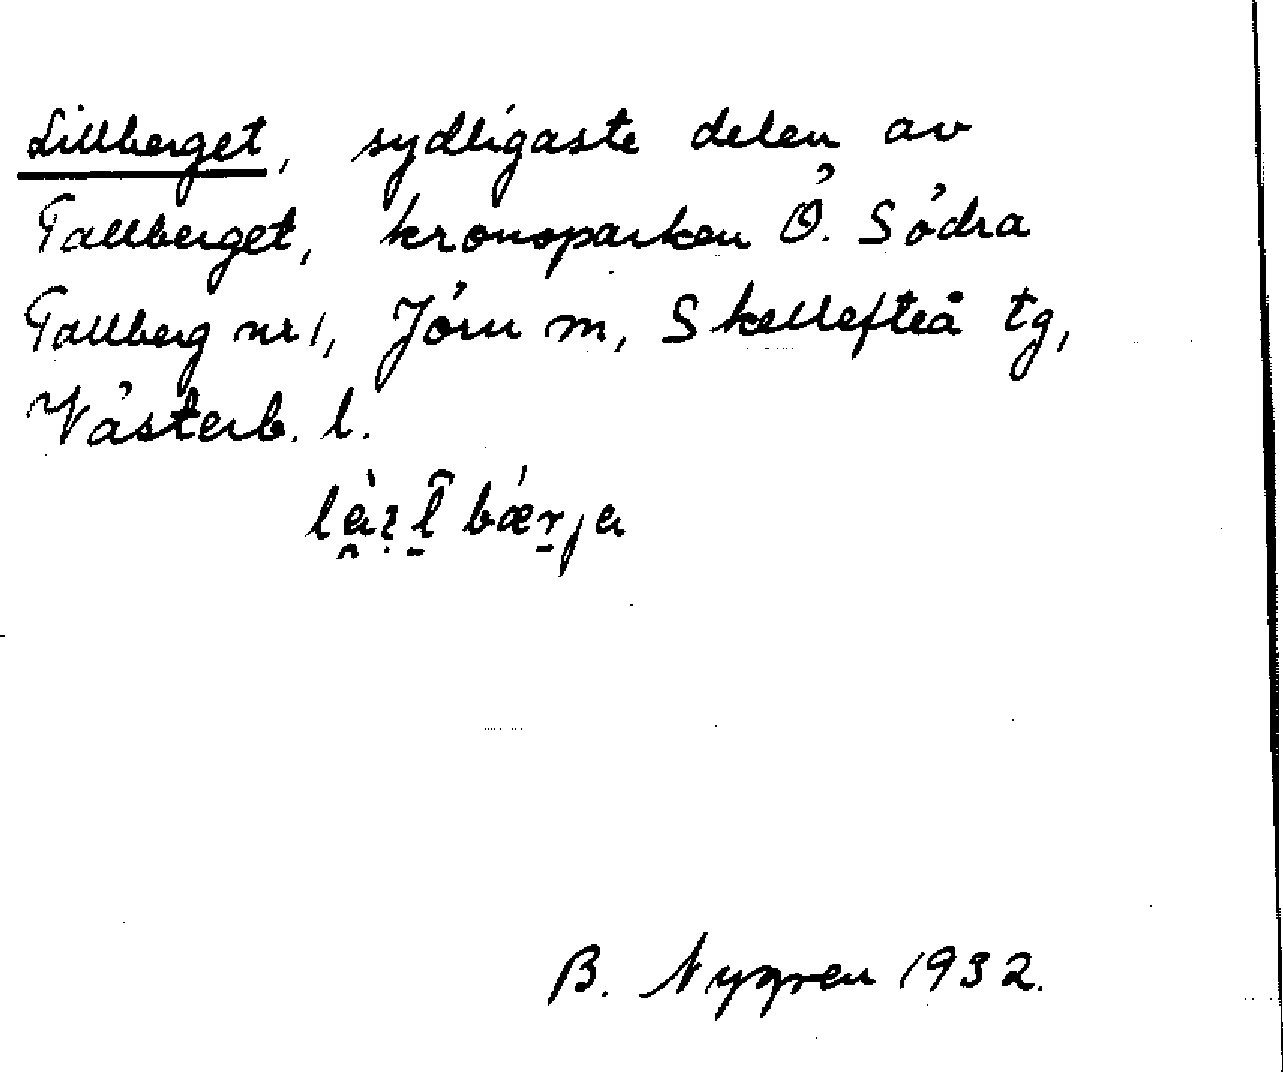 Lillberget, sydligaste delen av
Tallberget, kronoparken Ö. Södra
Tallberg nr 1, Jörn m, Skellefteå tg,
Västerb. l.
B. Nygren 1932.